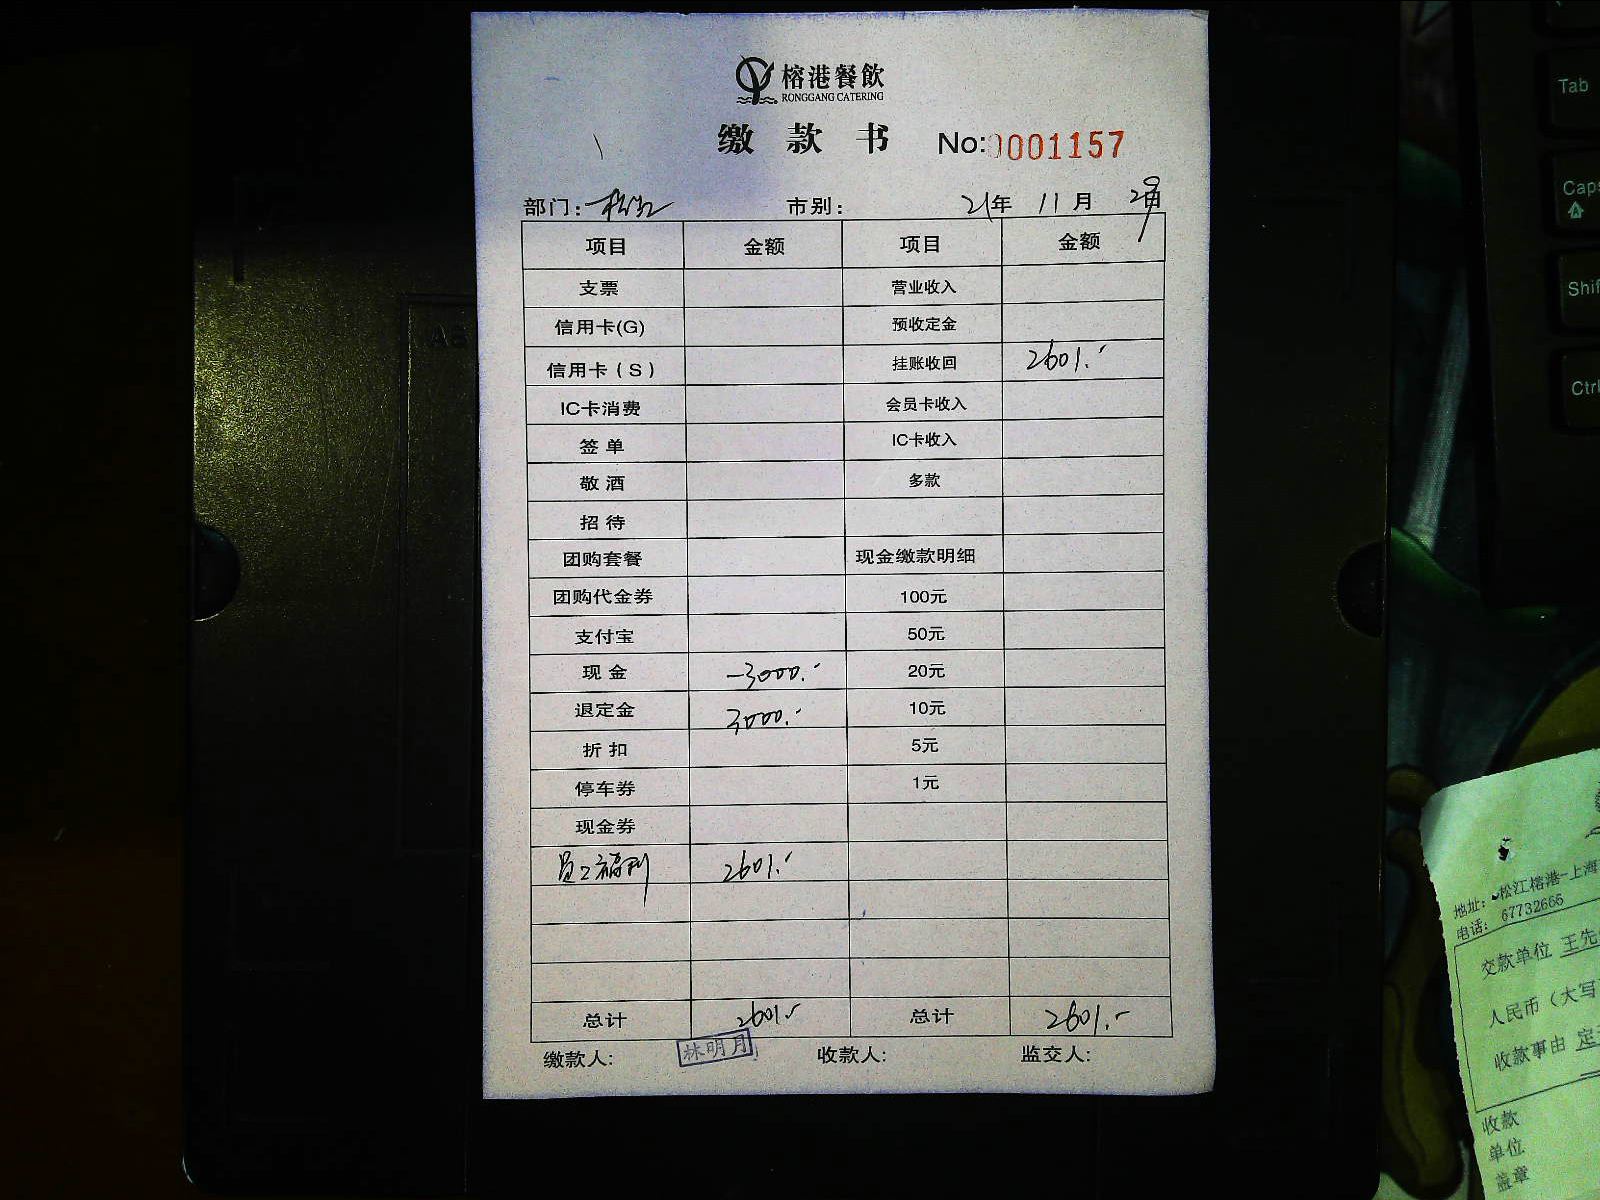 榕港餐飲
RONGGANG CATERING
缴款书 No:0001157
部门: 松江 市别: 21年 11月 29日
项目 金额 项目 金额
支票 营业收入
信用卡(G) 预收定金
信用卡(S) 挂账收回 2601.-
IC卡消费 会员卡收入
签单 IC卡收入
敬酒 多款
招待
团购套餐 现金缴款明细
团购代金券 100元
支付宝 50元
现金 -3000.- 20元
退定金 3000.- 10元
折扣 5元
停车券 1元
现金券
员工福利 2601.-
总计 2601.- 总计 2601.-
缴款人: 林明月 收款人: 监交人:
地址: 松江榕港-上海
电话: 67732666
交款单位 王先
人民币(大写
收款事由 定
收款
单位
盖章
Tab
Caps
Shif
Ctrl